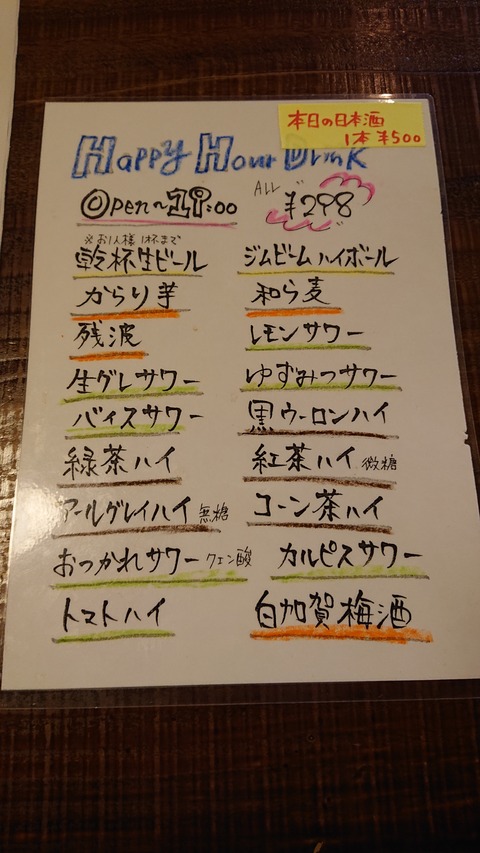 本日の日本酒
1本 ¥500
Happy Hour Drink
Open~19:00 ALL ¥298
※お1人様1杯まで
乾杯生ビール ジムビームハイボール
からり芋 和ら麦
残波 レモンサワー
生グレサワー ゆずみつサワー
バイスサワー 黒ウーロンハイ
緑茶ハイ 紅茶ハイ 微糖
アールグレイハイ 無糖 コーン茶ハイ
おつかれサワー クエン酸 カルピスサワー
トマトハイ 白加賀梅酒